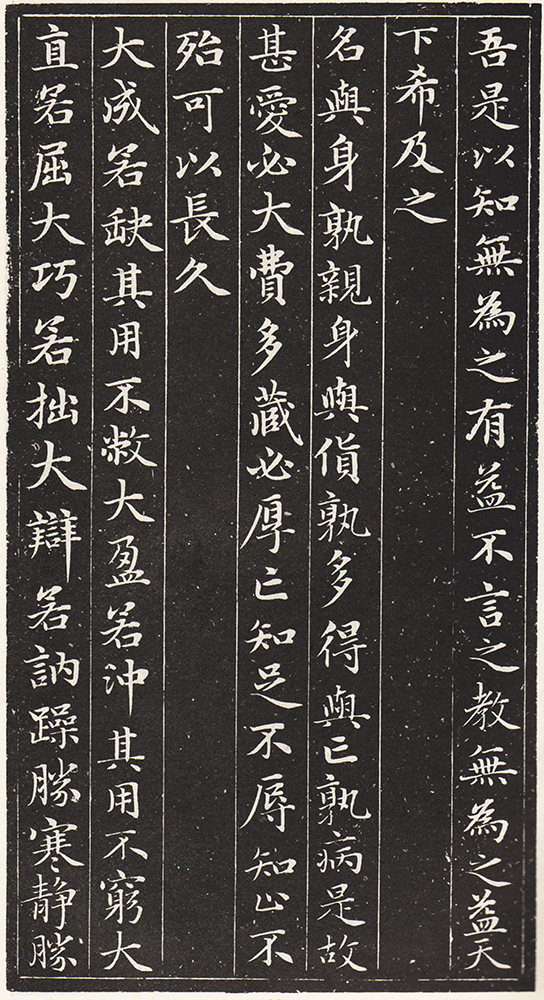 吾是以知無為之有益不言之教無為之益天
下希及之
名與身孰親身與貨孰多得與亡孰病是故
甚愛必大費多藏必厚亡知足不辱知止不
殆可以長久
大成若缺其用不敝大盈若沖其用不窮大
直若屈大巧若拙大辯若訥躁勝寒靜勝